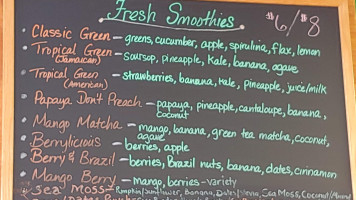 Fresh Smoothies $6/$8
• Classic Green - greens, cucumber, apple, spirulina, flax, lemon
• Tropical Green - soursop, pineapple, kale, banana, agave
(Jamaican)
• Tropical Green - strawberries, banana, kale, pineapple, juice/milk
(American)
• Papaya Don't Preach - papaya, pineapple, cantaloupe, banana,
coconut
• Mango Matcha - mango, banana, green tea matcha, coconut,
agave
• Berrylicious - berries, apple
• Berry & Brazil - berries, Brazil nuts, banana, dates, cinnamon
• Mango Berry - mango, berries - variety
Sea Moss - Pumpkin/Sunflower, Banana, Dates/Stevia, Sea Moss, Coconut/Almond